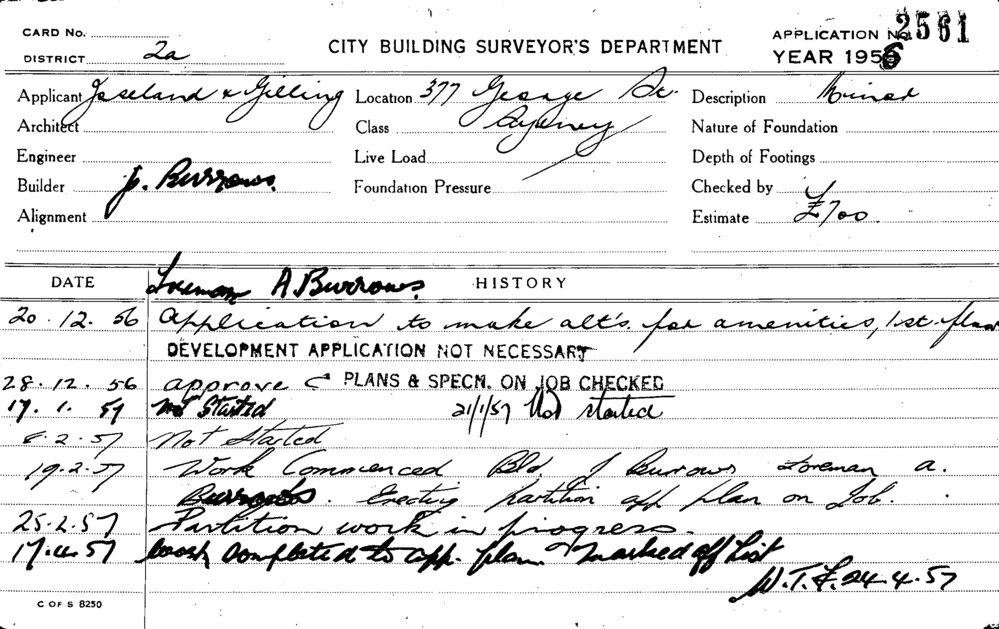 CARD No.
DISTRICT 2a
CITY BUILDING SURVEYOR'S DEPARTMENT
APPLICATION No. 2561
YEAR 1956
Applicant Joseland & Gilling Location 377 George St. Description Minor
Architect Class Sydney Nature of Foundation
Engineer Live Load Depth of Footings
Builder J. Burrows. Foundation Pressure Checked by
Alignment Estimate £700.
DATE Foreman A Burrows. HISTORY
20.12.56 Application to make alt's. for amenities, 1st. floor
DEVELOPMENT APPLICATION NOT NECESSARY
28.12.56 approve C PLANS & SPECN. ON JOB CHECKED
17.1.57 Not Started 21/1/57 Not started
8.2.57 Not Started
19.2.57 Work Commenced Bld J Burrows Foreman a.
Burrows. Erecting partition app plan on Job.
25.2.57 Partition work in progress.
17.4.57 Work Completed to app. plan & marked off List
W.T.F. 24.4.57
C OF S 8250